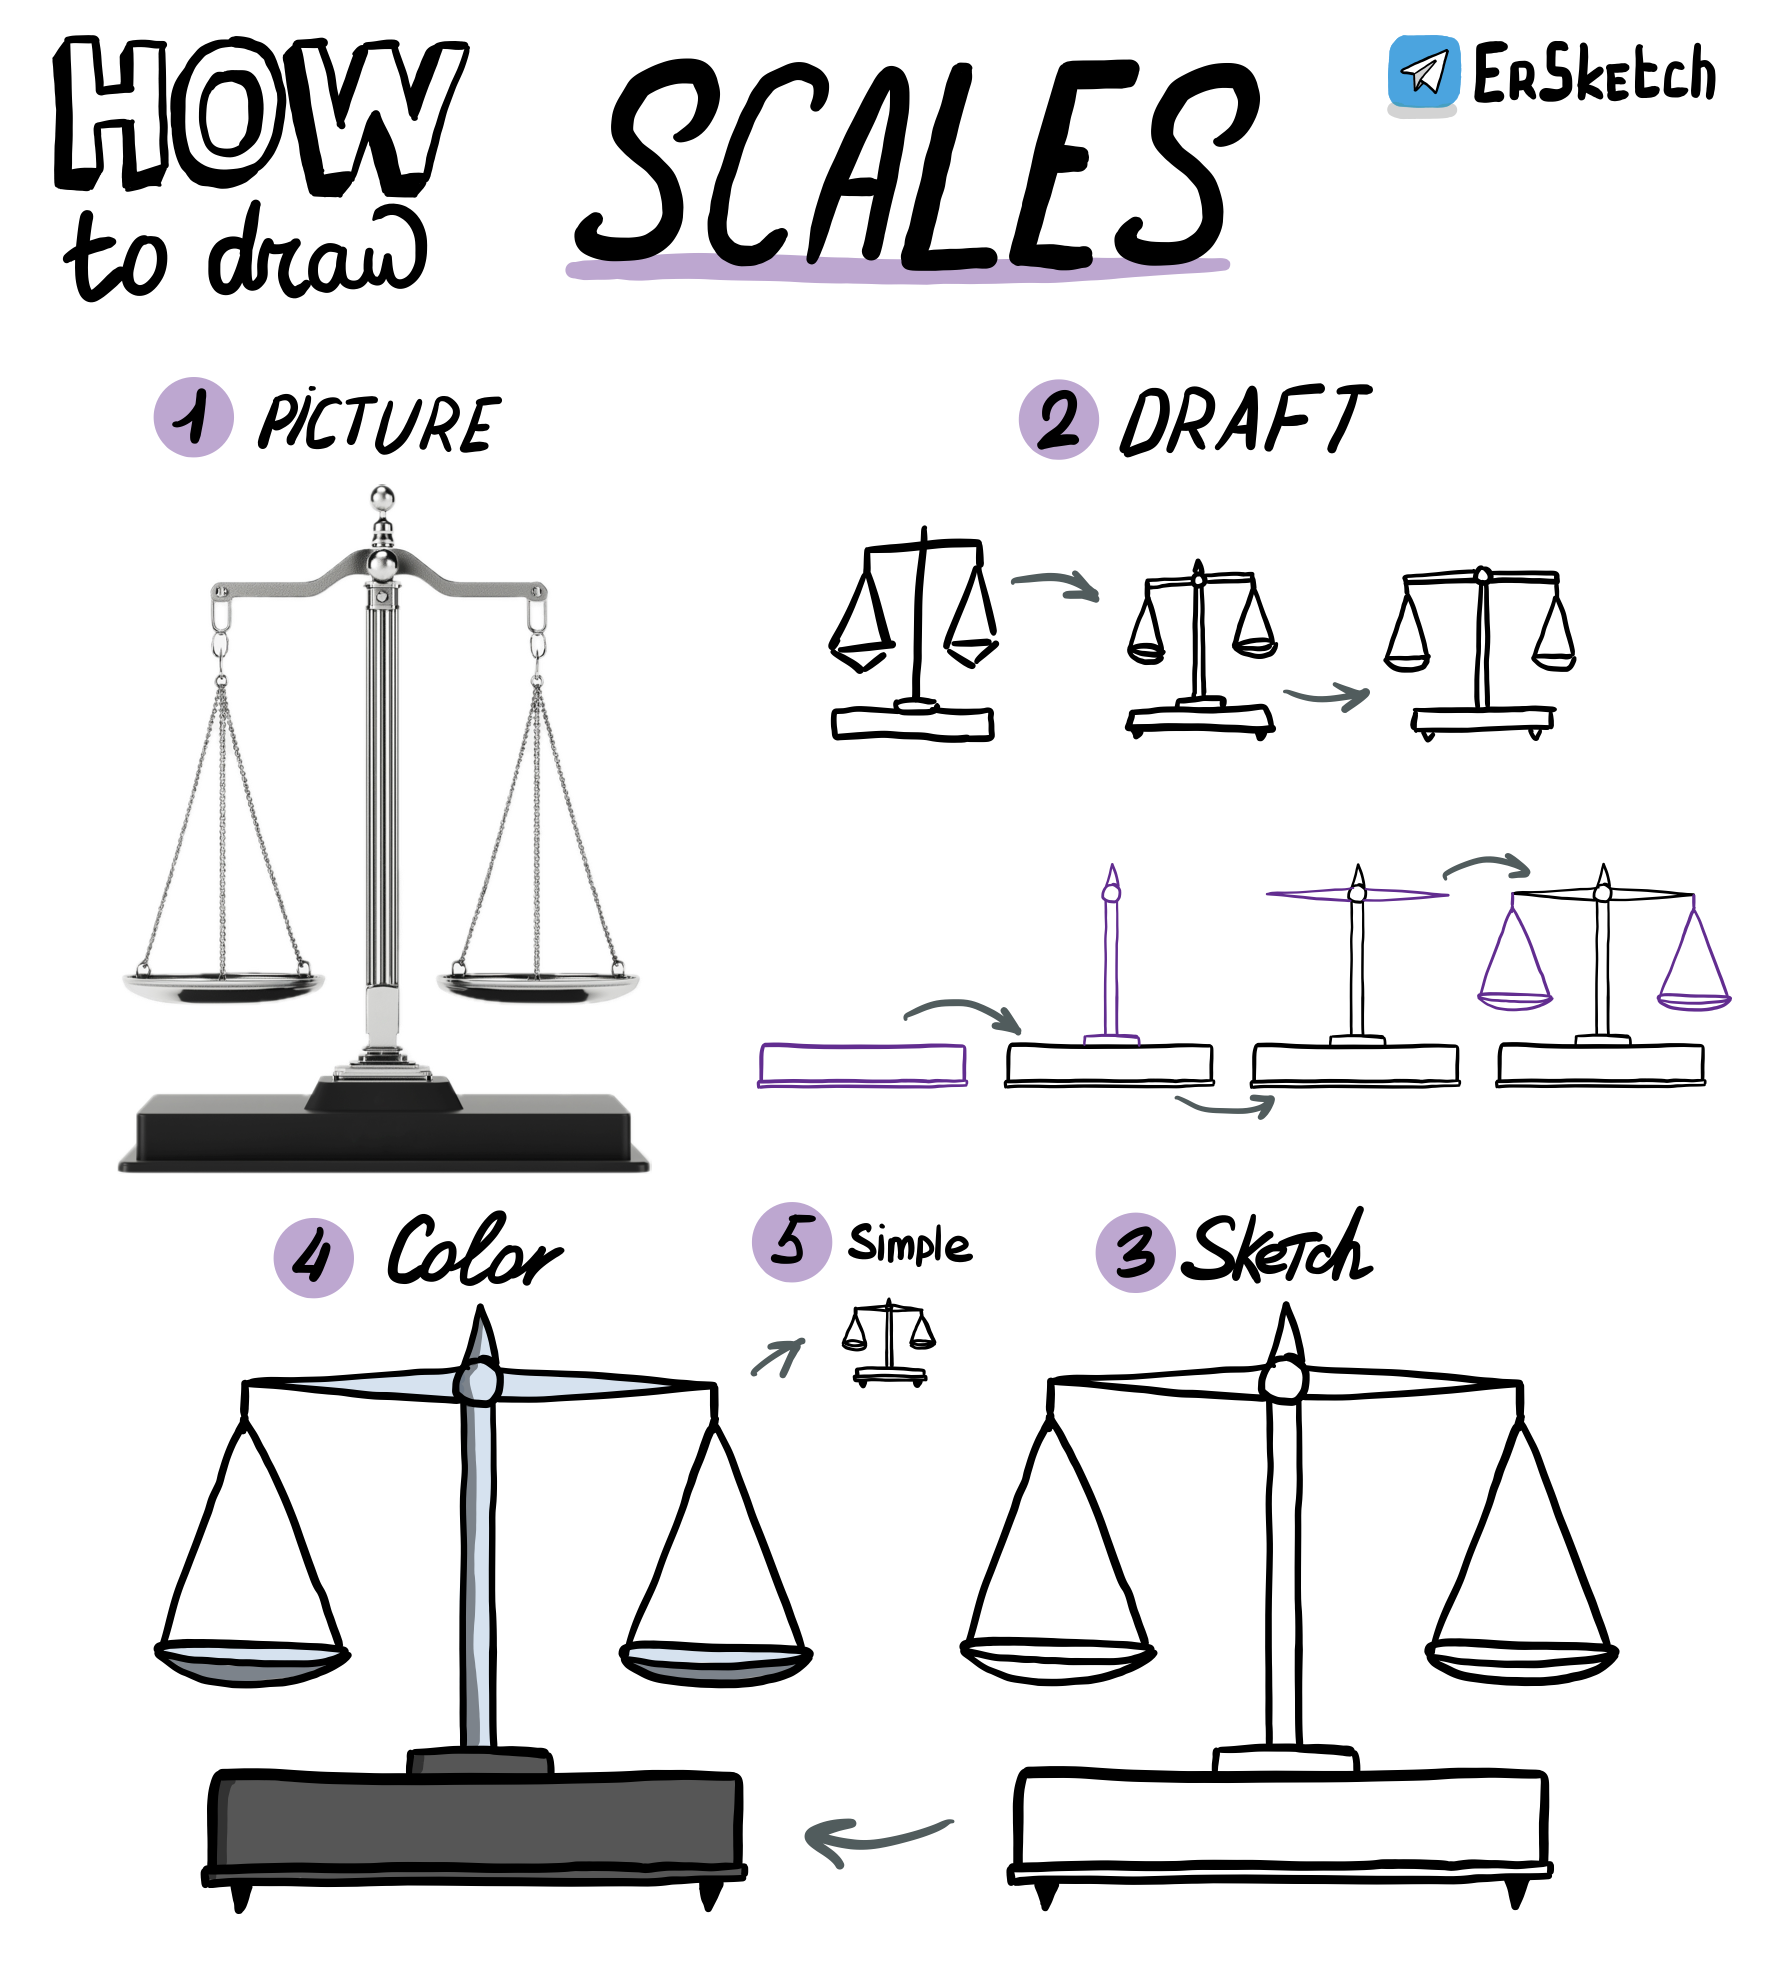 HOW
to draw
SCALES
ErSketch
1 PiCTURE
2 DRAFT
4 Color
5 Simple
3 Sketch